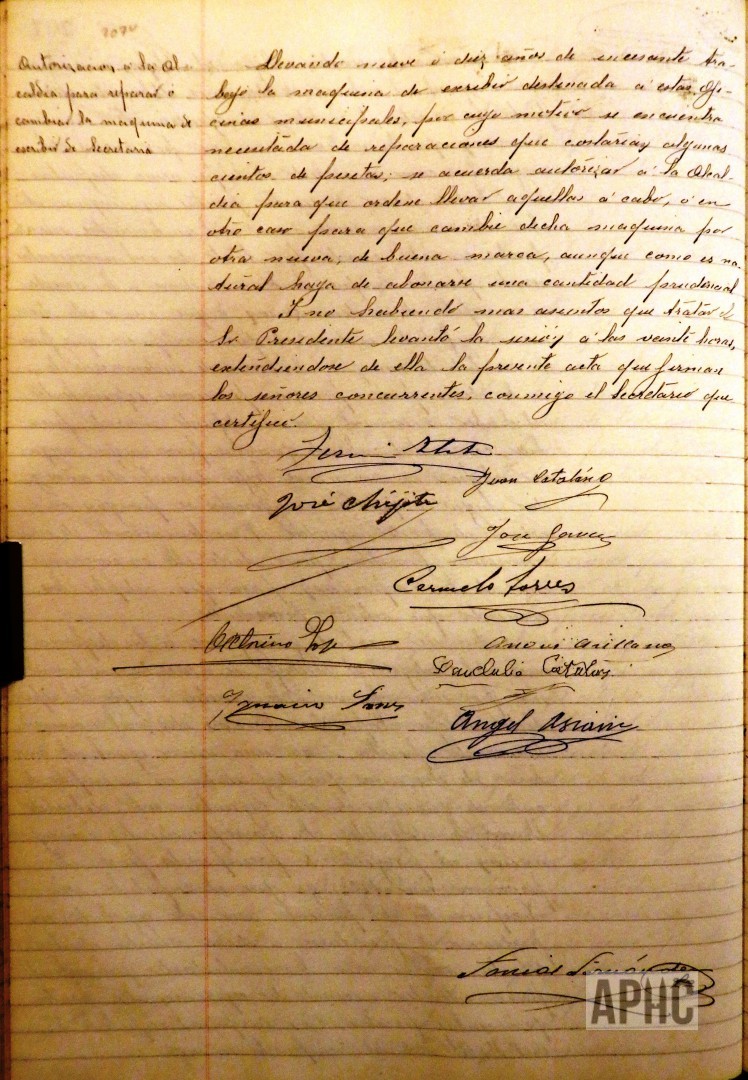 Autorizacion á la Al-
caldía para reparar ó
cambiar la maquina de
escribir de Secretaria
Llevando nueve ó diez años de incesante tra-
bajo la maquina de escribir destinada á estas Ofi-
cinas municipales, por cuyo motivo se encuentra
necesitada de reparaciones que costarían algunos
cientos de pesetas; se acuerda autorizar á la Alcal-
día para que ordene llevar aquellas á cabo, ó en
otro caso para que cambie dicha maquina por
otra nueva, de buena marca, aunque como es na-
tural haya de abonarse una cantidad prudencial
Y no habiendo mas asuntos que tratar el
Sr Presidente levantó la sesión á las veinte horas,
extendiendose de ella la presente acta que firman
los señores concurrentes, conmigo el Secretario que
certifico.
Juan Catalán
José
José
Carmelo Torres
Victorino
Arellano
Catalán
Ignacio
Angel Asiain
Fernández
APHC